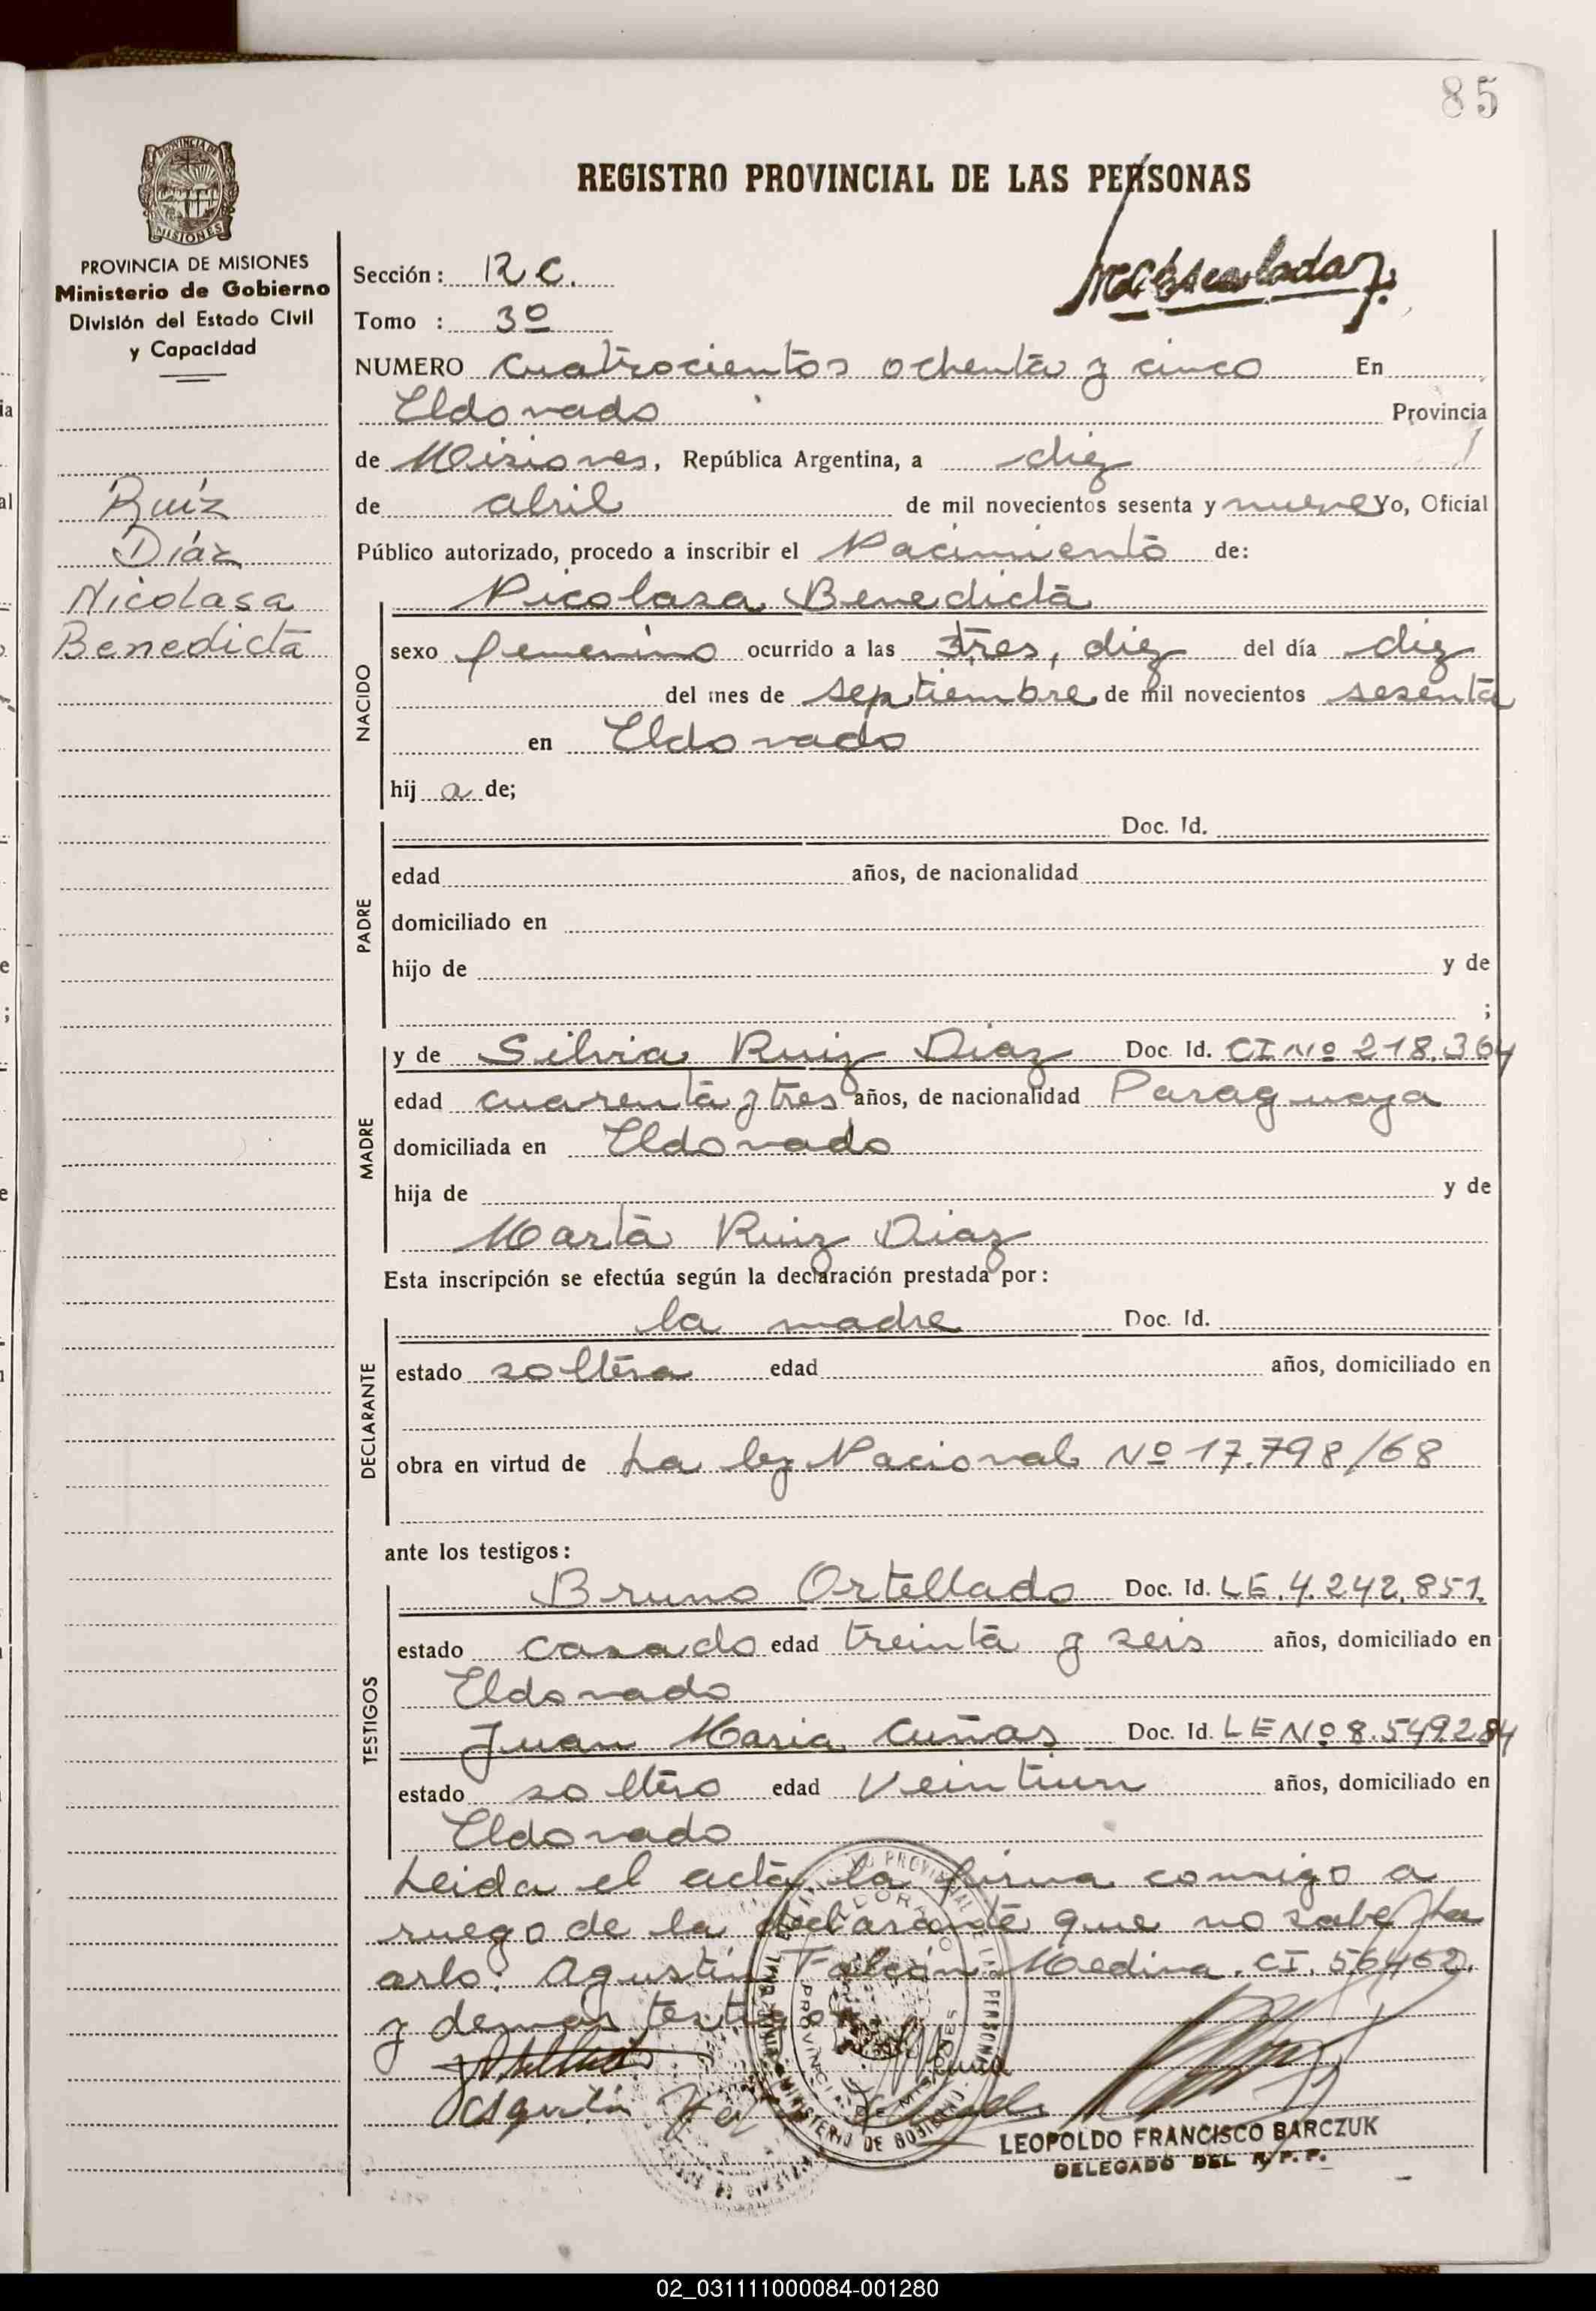 85
PROVINCIA DE
MISIONES
PROVINCIA DE MISIONES
Ministerio de Gobierno
División del Estado Civil
y Capacidad
Ruíz
Díaz
Nicolasa
Benedicta
REGISTRO PROVINCIAL DE LAS PERSONAS
Sección: R C.
Tomo : 3º
NUMERO Cuatrocientos ochenta y cinco En
Eldorado Provincia
de Misiones, República Argentina, a diez
de abril de mil novecientos sesenta y nueve Yo, Oficial
Público autorizado, procedo a inscribir el Nacimiento de:
NACIDO
Nicolasa Benedicta
sexo femenino ocurrido a las tres, diez del día diez
del mes de septiembre de mil novecientos sesenta
en Eldorado
hij a de;
PADRE
Doc. Id.
edad años, de nacionalidad
domiciliado en
hijo de y de
;
MADRE
y de Silvia Ruiz Diaz Doc. Id. CI Nº 218.364
edad cuarenta y tres años, de nacionalidad Paraguaya
domiciliada en Eldorado
hija de y de
Marta Ruiz Diaz
Esta inscripción se efectúa según la declaración prestada por:
DECLARANTE
la madre Doc. Id.
estado soltera edad años, domiciliado en
obra en virtud de La ley Nacional Nº 17.798/68
ante los testigos:
TESTIGOS
Bruno Ortellado Doc. Id. LE. 4.242.851.
estado casado edad treinta y seis años, domiciliado en
Eldorado
Juan Maria Cuñas Doc. Id. LE Nº 8.549284
estado soltero edad veintiun años, domiciliado en
Eldorado
Leida el acta la firma conmigo a
ruego de la declarante que no sabe
arlo: Agustín Falcón Medina. CI. 56462.
y demas testigos
Agustín
MINISTERIO DE GOBIERNO
ELDORADO
PROVINCIA DE MISIONES
LEOPOLDO FRANCISCO BARCZUK
DELEGADO DEL R. P. P.
02_031111000084-001280